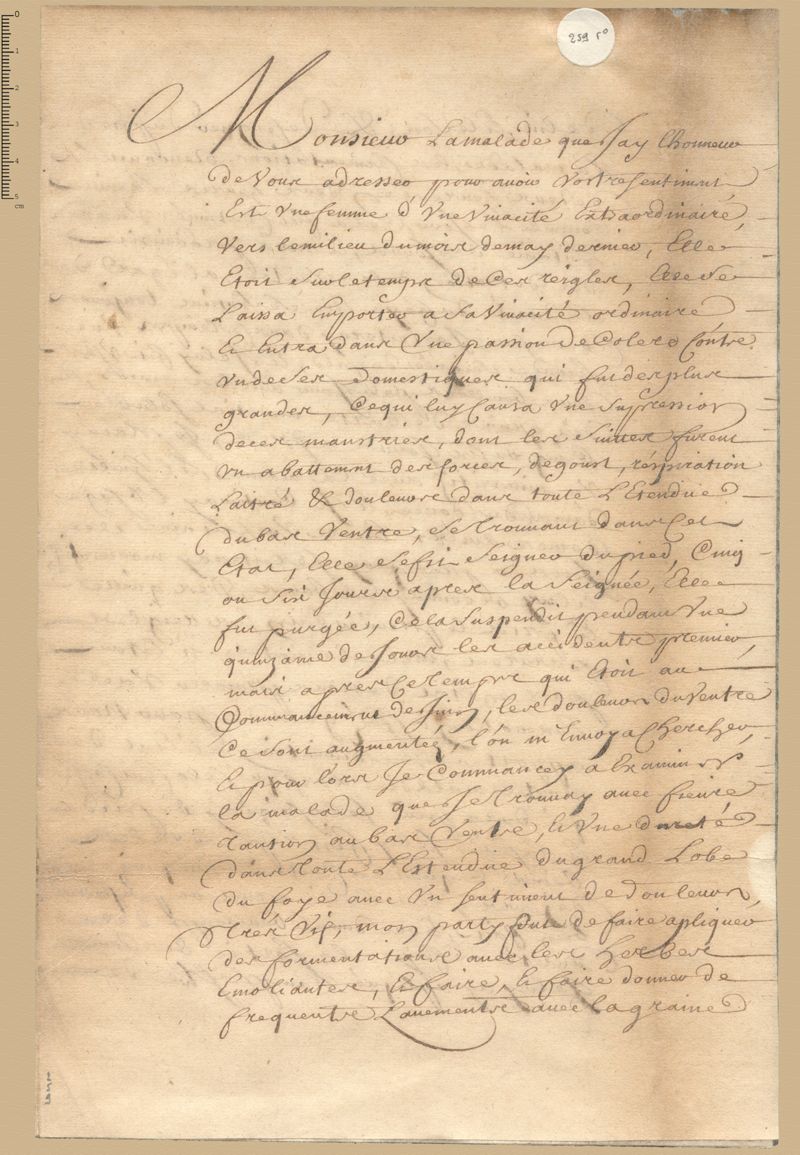 259 r°
Monsieur La malade que Jay Lhonneur
de Vous adresser pour avoir Vostre sentiment
Est Vne femme d'Vne Vivacité Extraordinaire,
Vers le milieu du mois de may dernier, Elle
Etoit sur le temps de Ces reigles, Elle se
Laissa Emporter a sa Vivacité ordinaire
Et Entra dans Vne passion de Colere Contre
vn de ses Domestiques qui fut des plus
grandes, Ce qui luy Causa Vne supression
de ces manstries, dont les suittes furent
vn abattement des forces, degoust, réspiration
& douleurs dans toute L'Etendüe
du bas Ventre, se trouvant dans Cet
Etat, Elle se fit seigner du pied, Cinq
ou six Jours apres la seignée, Elle
fut purgée, Cela suspendit pendant Vne
quinzaine de Jours les accidents premier,
mais apres Ce temps qui Etoit au
Commancement de Juin, les douleurs du Ventre
Ce sont augmentés, l'on m'Envoya Chercher,
Et pour lors Je Commancey a Examiner
la malade que Je trouvay avec fievre
tantion au bas Ventre, Et Vne dureté
dans toute L'Estendüe du grand Lobe
du foye avec Vn sentiment de douleurs
trés Vif, mon party fut de faire apliquer
des formentations avec les herbes
Emoliantes, Et faire, Et faire donner de
frequents Lavements avec la graine